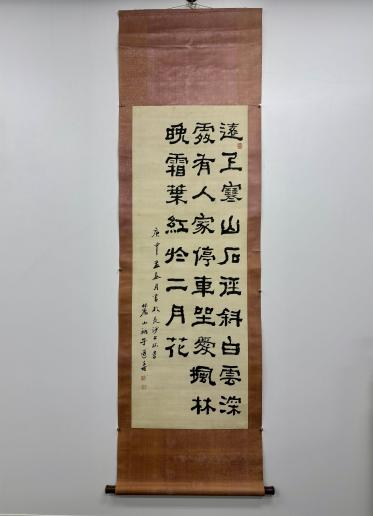 遠上寒山石徑斜白雲深
處有人家停車坐愛楓林
晚霜葉紅於二月花
庚申孟春月書於長沙
麓山